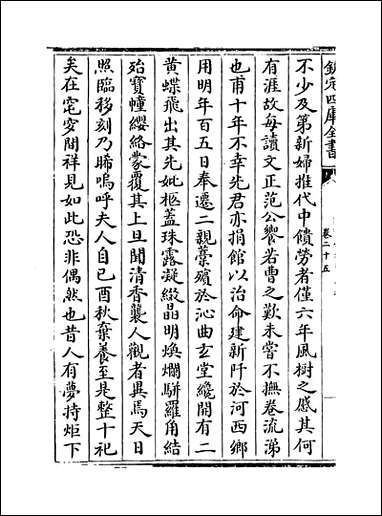 欽定四庫全書
卷二十五
不少及第新婦推代中饋勞者僅六年風樹之感其何
有涯故每讀文正范公饗若曹之歎未嘗不撫卷流涕
也甫十年不幸先君亦捐館以治命建新阡於河西鄉
用明年百五日奉遷二親藁殯於沁曲玄堂纔開有二
黄蝶飛出其先妣柩蓋珠露凝綴晶明煥爛駢羅角結
殆寶幢纓絡蒙覆其上旦聞清香襲人觀者異焉天日
照臨移刻乃晞嗚呼夫人自己酉秋棄養至是整十祀
矣在窀穸間祥見如此恐非偶然也昔人有夢持炬下